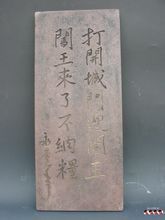 打開城門迎闖王
闖王來了不納糧